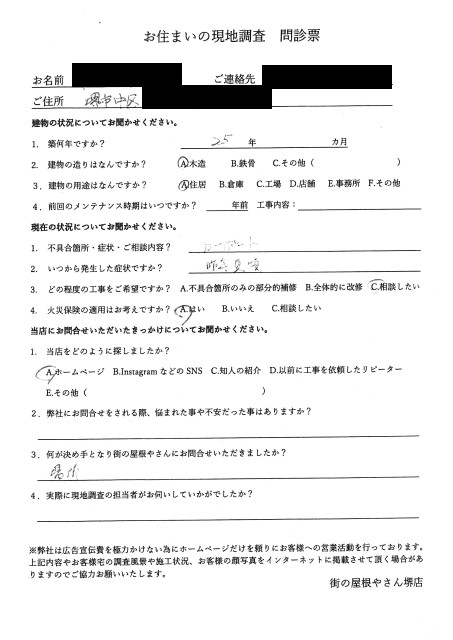 お住まいの現地調査　問診票
お名前　ご連絡先
ご住所　堺市中区
建物の状況についてお聞かせください。
1. 築何年ですか？　25 年　カ月
2. 建物の造りはなんですか？　A.木造　B.鉄骨　C.その他（　）
3．建物の用途はなんですか？　A.住居　B.倉庫　C.工場　D.店舗　E.事務所　F.その他
4．前回のメンテナンス時期はいつですか？　年前　工事内容：
現在の状況についてお聞かせください。
1. 不具合箇所・症状・ご相談内容？　カーポート
2. いつから発生した症状ですか？　昨年
3. どの程度の工事をご希望ですか？　A.不具合箇所のみの部分的補修　B.全体的に改修　C.相談したい
4. 火災保険の適用はお考えですか？　A.はい　B.いいえ　C.相談したい
当店にお問合せいただいたきっかけについてお聞かせください。
1. 当店をどのように探しましたか？
A.ホームページ　B.InstagramなどのSNS　C.知人の紹介　D.以前に工事を依頼したリピーター
E.その他（　）
2．弊社にお問合せをされる際、悩まれた事や不安だった事はありますか？
3．何が決め手となり街の屋根やさんにお問合せいただきましたか？
場所
4．実際に現地調査の担当者がお伺いしていかがでしたか？
※弊社は広告宣伝費を極力かけない為にホームページだけを頼りにお客様への営業活動を行っております。
上記内容やお客様宅の調査風景や施工状況、お客様の顔写真をインターネットに掲載させて頂く場合がありますのでご協力お願いいたします。
街の屋根やさん堺店